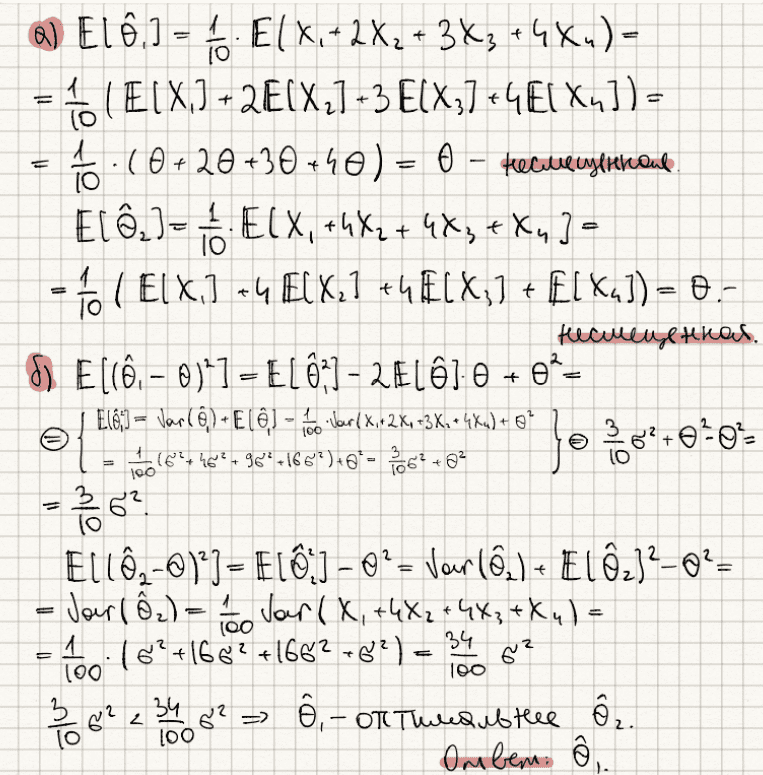 а) E[θ̂₁] = 1/10 · E(X₁ + 2X₂ + 3X₃ + 4X₄) =
= 1/10 (E[X₁] + 2E[X₂] + 3E[X₃] + 4E[X₄]) =
= 1/10 · (θ + 2θ + 3θ + 4θ) = θ - несмещенная.
E[θ̂₂] = 1/10 · E[X₁ + 4X₂ + 4X₃ + X₄] =
= 1/10 (E[X₁] + 4E[X₂] + 4E[X₃] + E[X₄]) = θ. -
несмещенная.
б) E[(θ̂₁ - θ)²] = E[θ̂₁²] - 2E[θ̂]·θ + θ² =
⊜ { E[θ̂₁²] = Var(θ̂₁) + E[θ̂₁] = 1/100 · Var(X₁ + 2X₂ + 3X₃ + 4X₄) + θ²
= 1/100 (σ² + 4σ² + 9σ² + 16σ²) + θ² = 3/10 σ² + θ² } ⊜ 3/10 σ² + θ² - θ² =
= 3/10 σ².
E[(θ̂₂ - θ)²] = E[θ̂₂²] - θ² = Var(θ̂₂) + E[θ̂₂]² - θ² =
= Var(θ̂₂) = 1/100 Var(X₁ + 4X₂ + 4X₃ + X₄) =
= 1/100 · (σ² + 16σ² + 16σ² + σ²) = 34/100 σ²
3/10 σ² < 34/100 σ² ⇒ θ̂₁ - оптимальнее θ̂₂.
Ответ: θ̂₁.